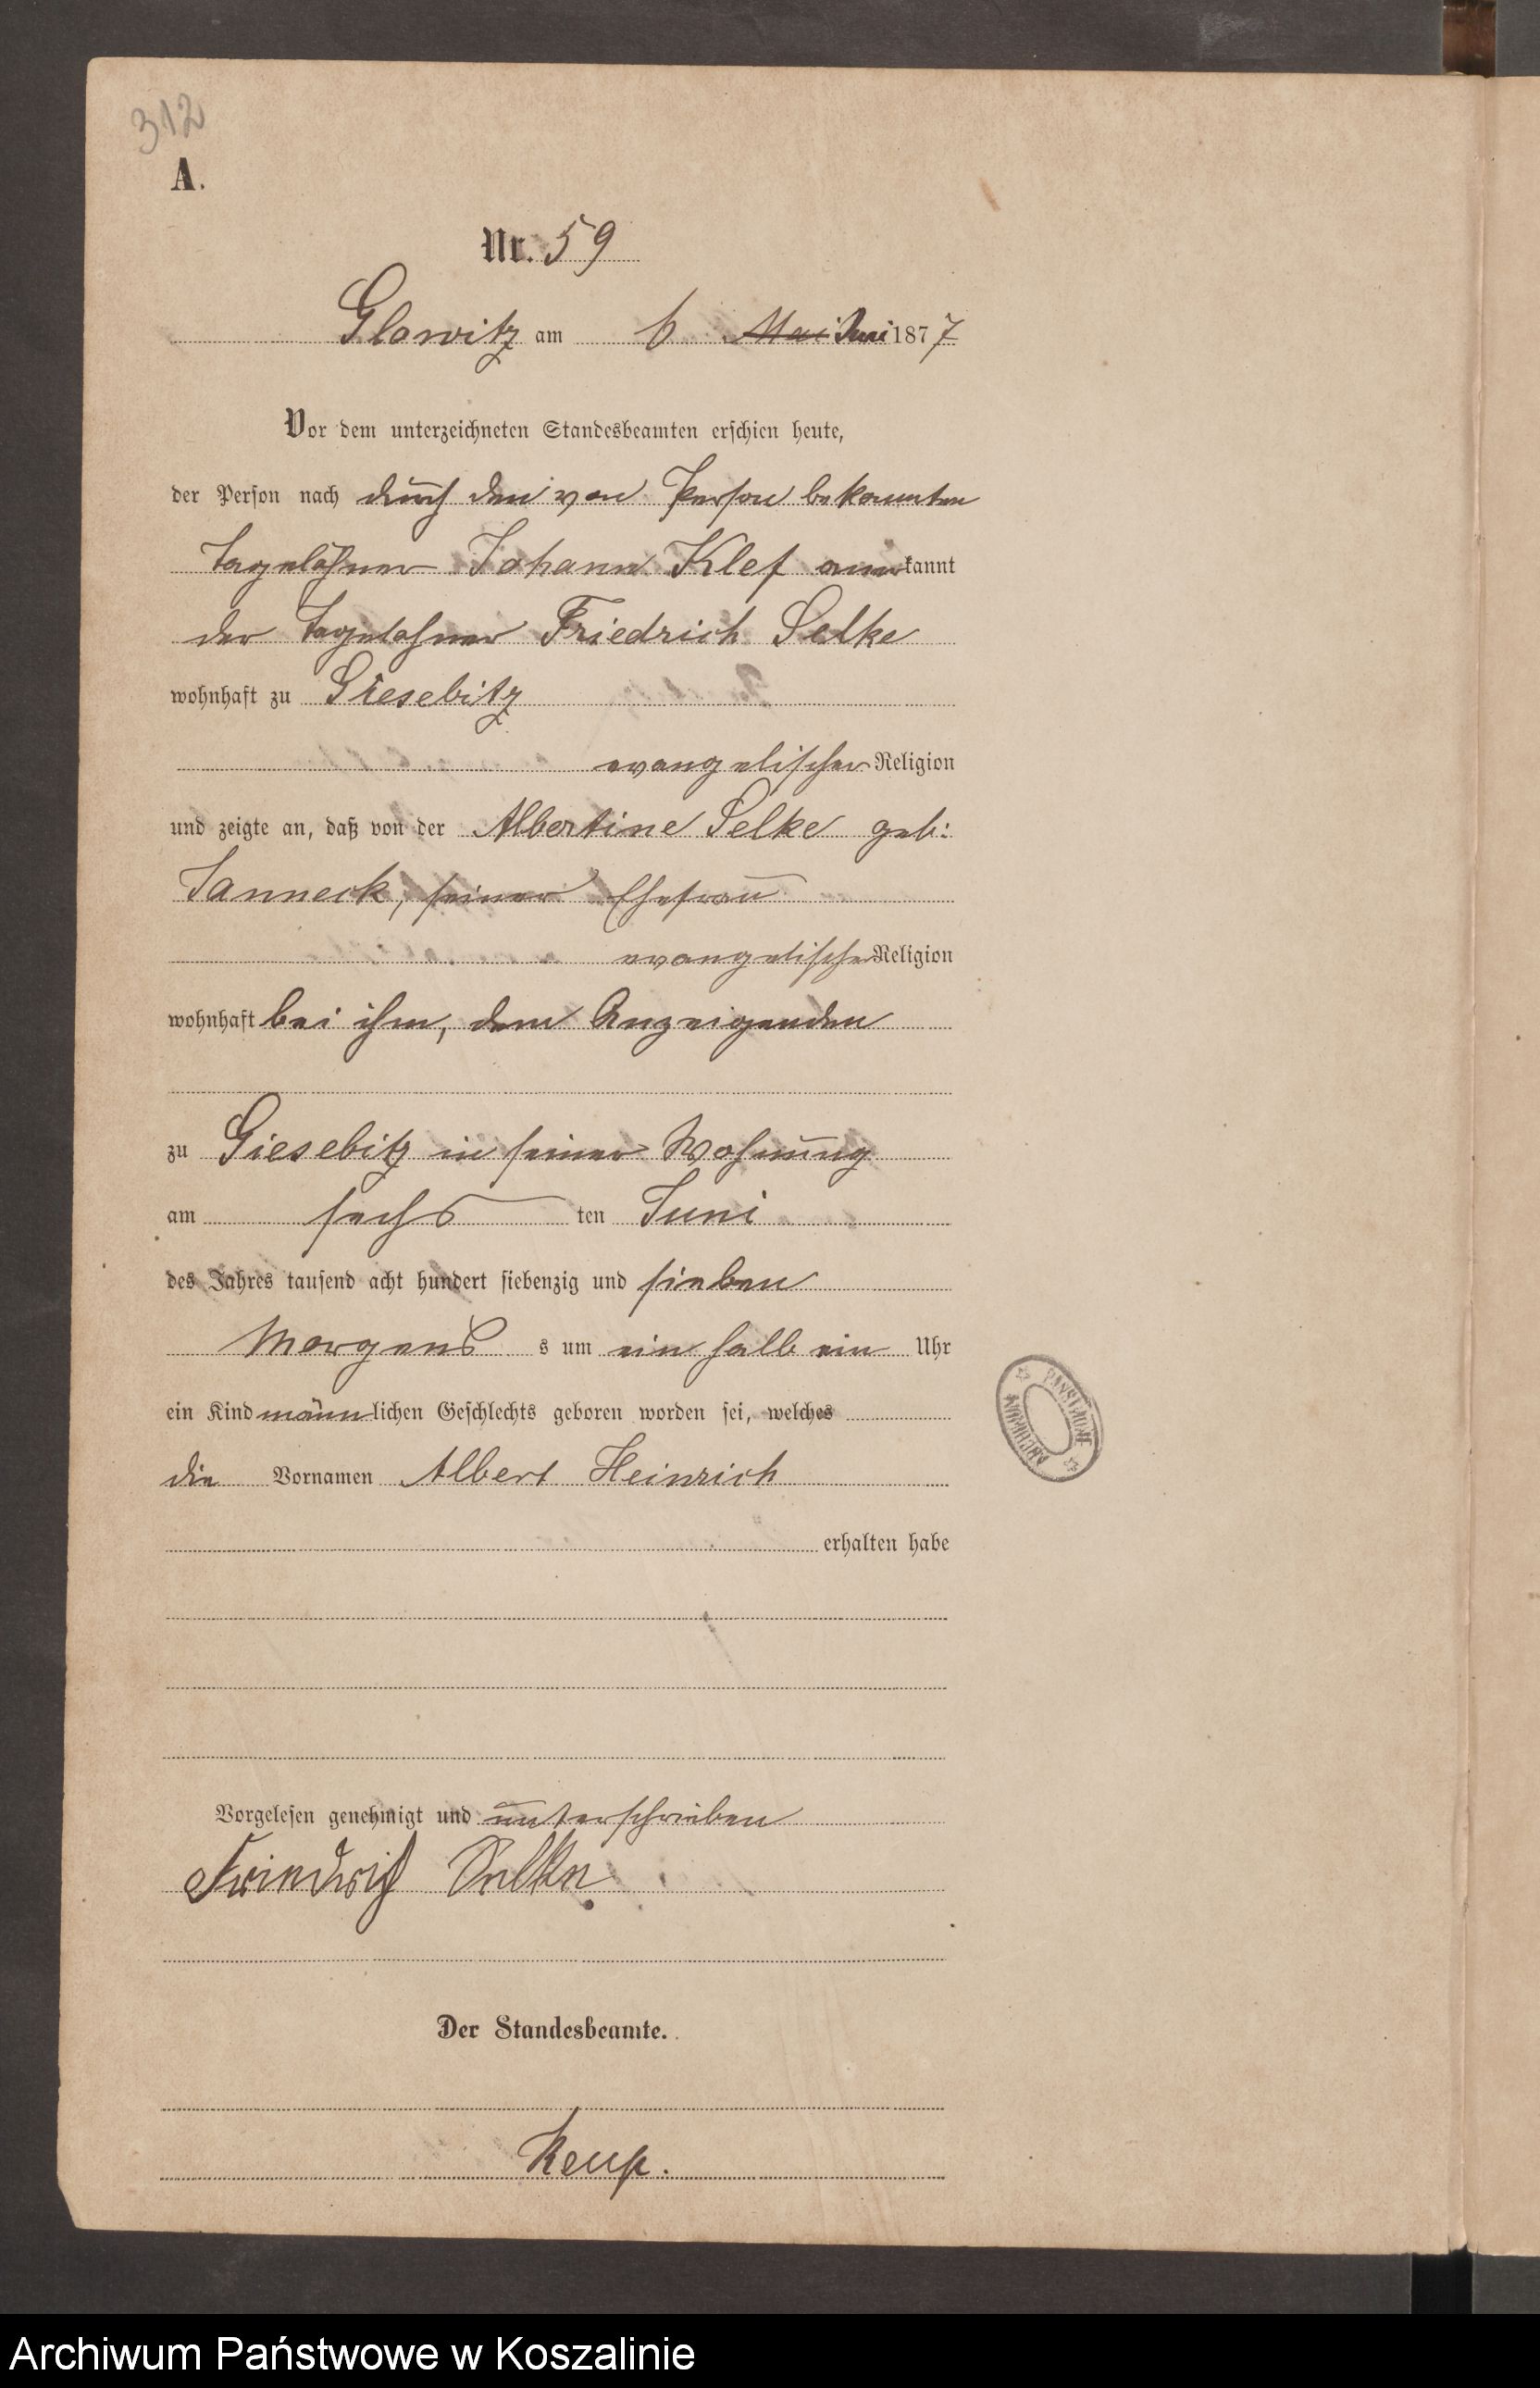 312
A.
Nr. 59
Glowitz am 6 Mai Juni 1877
Vor dem unterzeichneten Standesbeamten erschien heute,
der Person nach durch den von Person bekannten
Tagelöhner Johann Klef anerkannt
der Tagelöhner Friedrich Selke
wohnhaft zu Giesebitz
evangelischer Religion
und zeigte an, daß von der Albertine Selke geb:
Janneck, seiner Ehefrau
evangelischer Religion
wohnhaft bei ihm, dem Anzeigenden
zu Giesebitz in seiner Wohnung
am sechs ten Juni
des Jahres tausend acht hundert siebenzig und sieben
Morgens s um ein halb ein Uhr
ein Kind männlichen Geschlechts geboren worden sei, welches
die Vornamen Albert Heinrich
erhalten habe
Vorgelesen genehmigt und unterschrieben
Friedrich Selke
Der Standesbeamte.
Keup.
ARCHIWUM PAŃSTWOWE
Archiwum Państwowe w Koszalinie